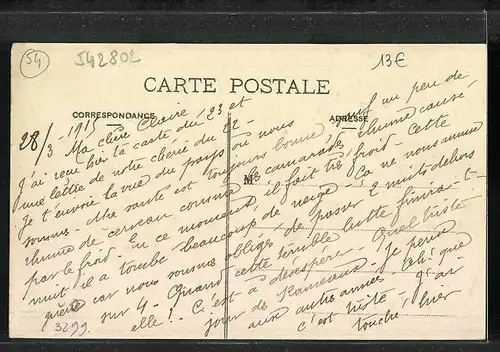 54
542802
13€
CARTE POSTALE
CORRESPONDANCE
ADRESSE
M
28/3 - 1915
Ma chère Claire
J'ai reçu hier ta carte du 23 et
une lettre de notre chérie du 22 -
Je t'envoie la vue du pays où nous
sommes - Ma santé est toujours bonne, sauf un peu de
rhume de cerveau comme les camarades, rhume causé
par le froid. En ce moment, il fait très froid - Cette
nuit il a tombé beaucoup de neige - Ça ne nous amuse
guère car nous sommes obligés de passer 2 nuits dehors
sur 4 - Quand cette terrible lutte finira-t-
elle ! - C'est à désespérer - Quel triste
jour de Rameaux - Je pense
aux autres années - Oh ! que
c'est triste - J'ai
touché hier
3299